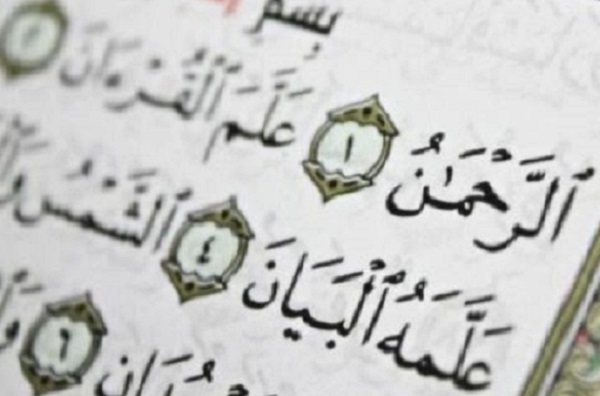 بِسْمِ
ٱلرَّحْمَٰنُ ١ عَلَّمَ ٱلْقُرْءَانَ ٢
عَلَّمَهُ ٱلْبَيَانَ ٤ ٱلشَّمْسُ
٦